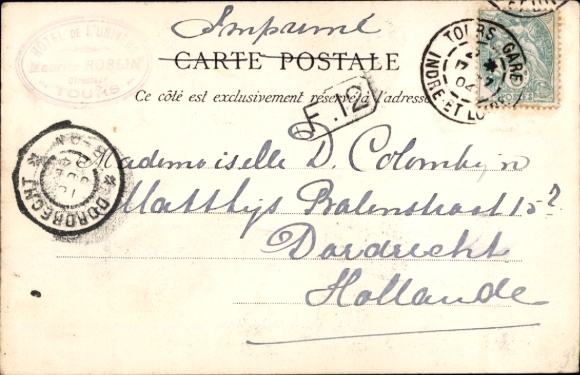 Imprimé
CARTE POSTALE
Ce côté est exclusivement réservé à l'adresse
HÔTEL DE L'UNIVERS
Maurice ROBLIN
Directeur
TOURS
TOURS-GARE
INDRE-ET-LOIRE
04
F. 12
DORDRECHT
Mademoiselle D. Colombijn
Matthys Balenstraat 15
Dordrecht
Hollande